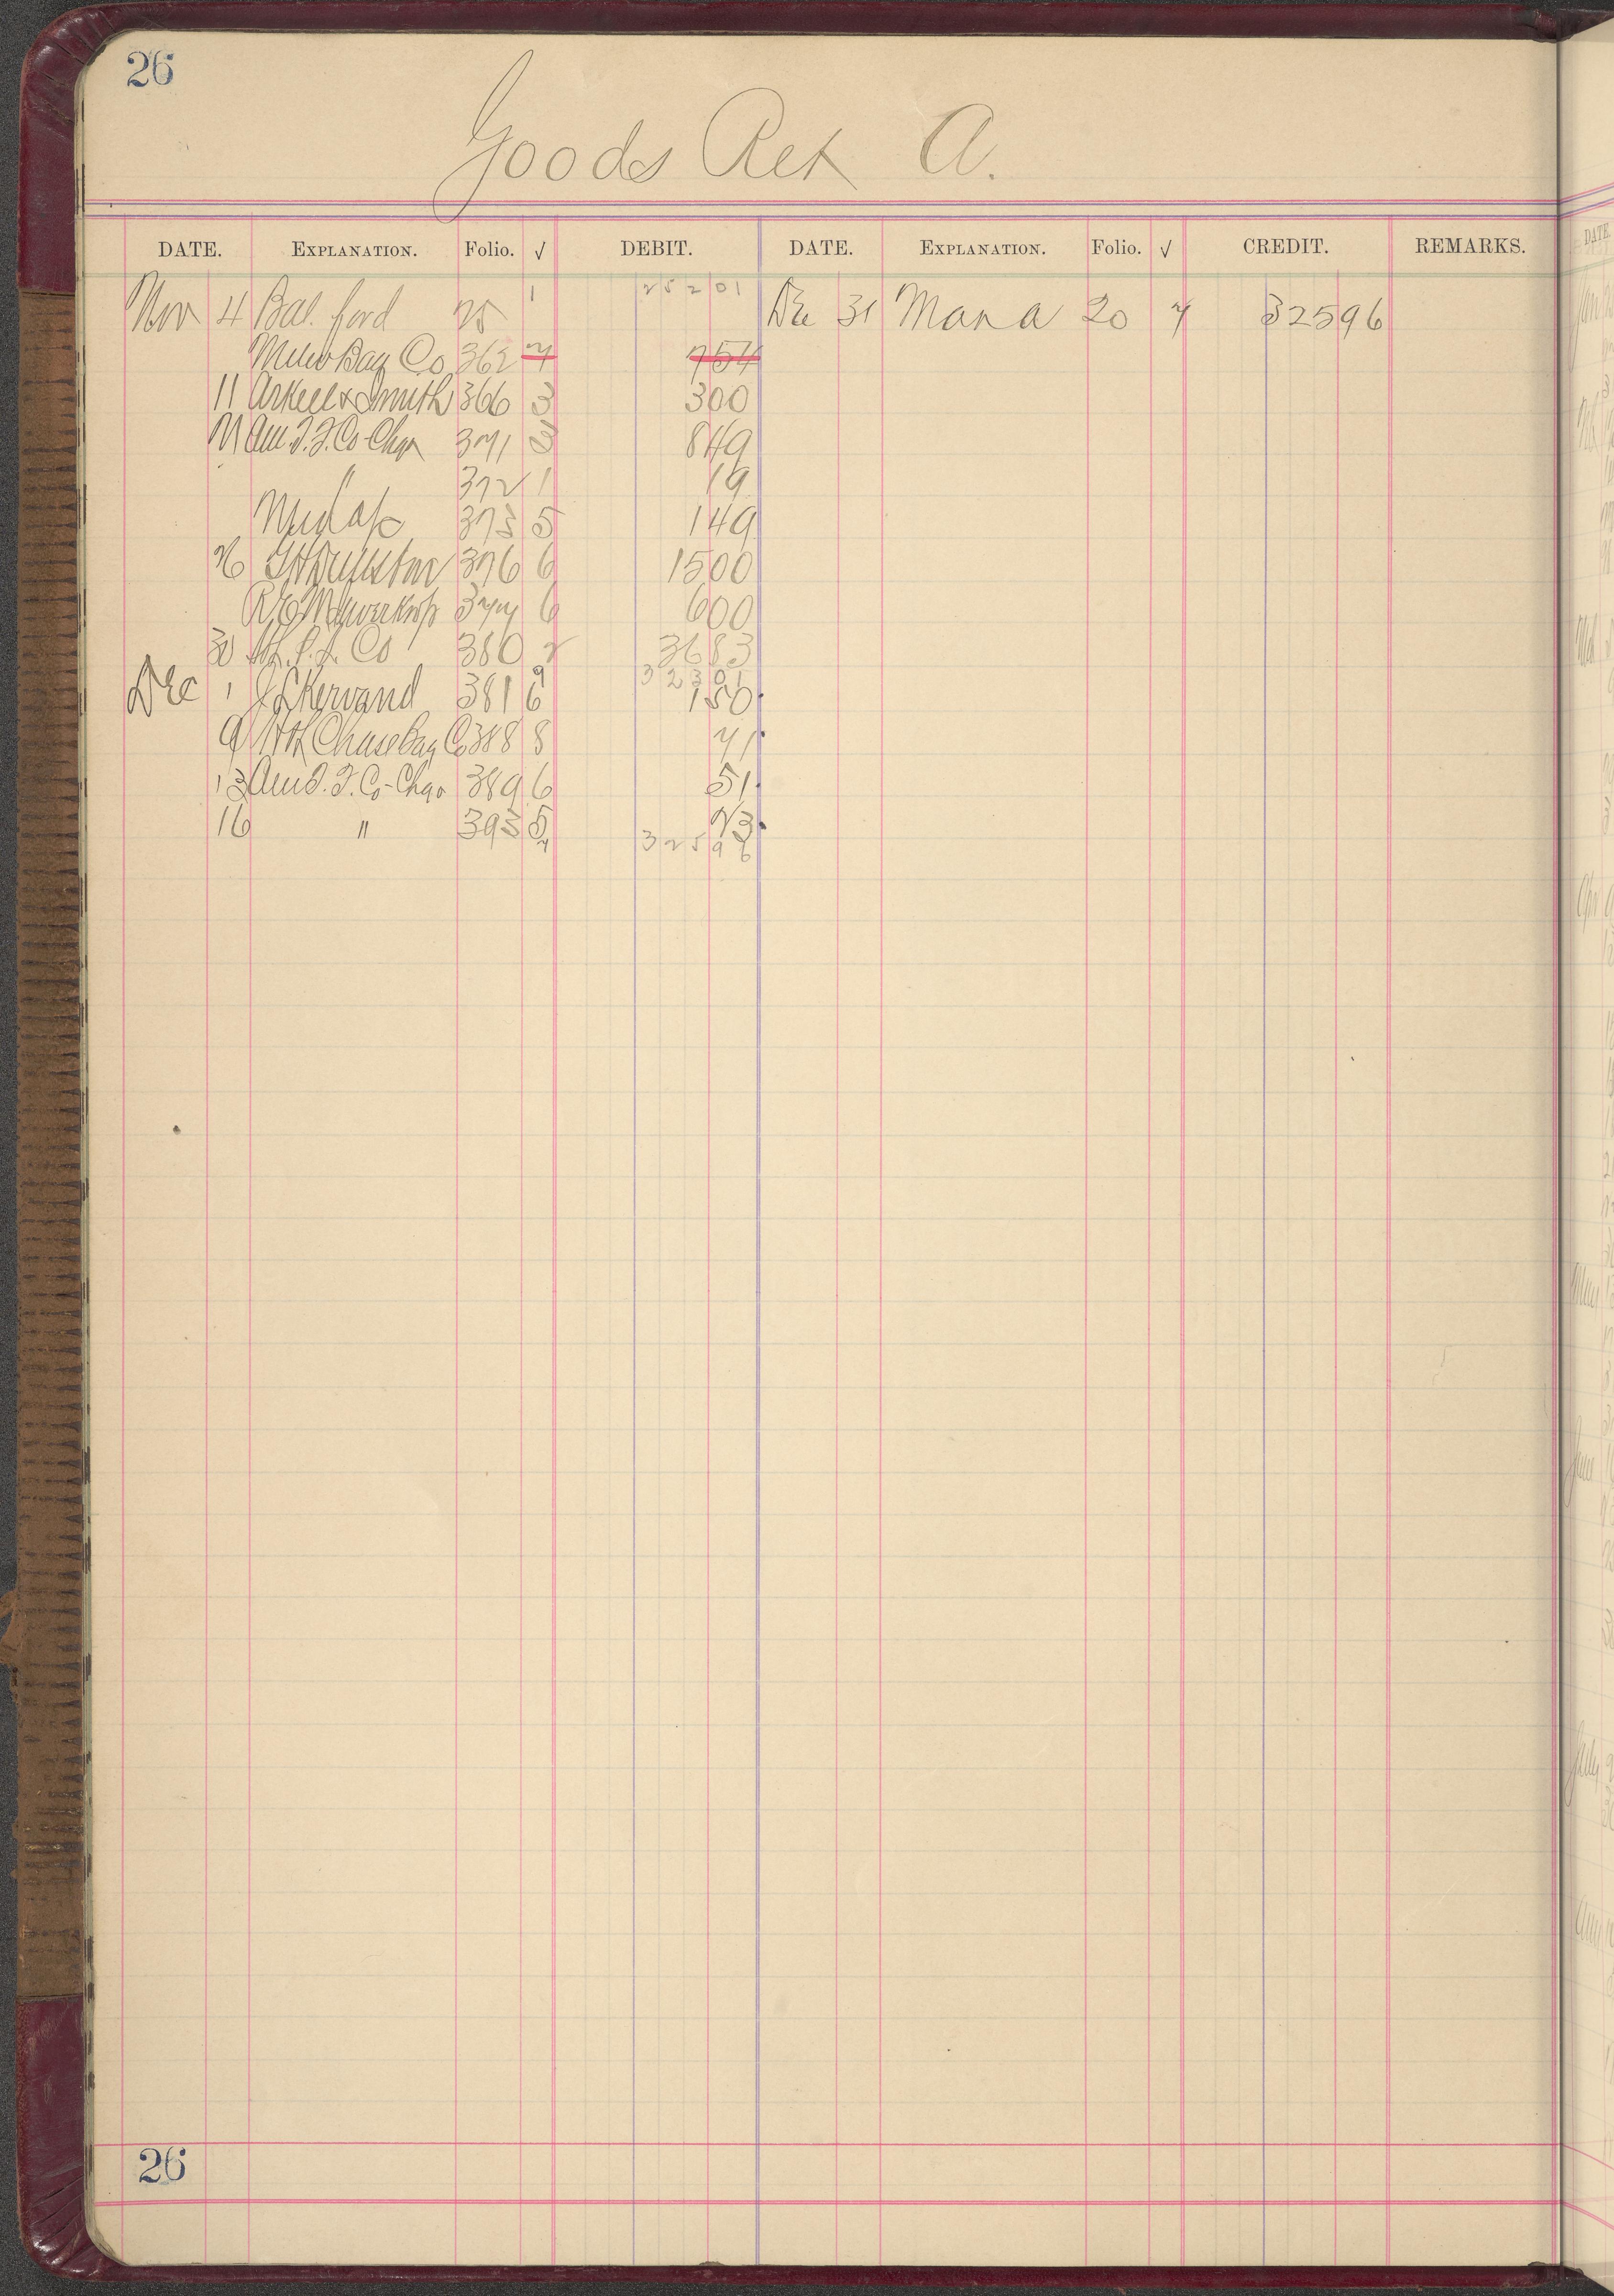 26
Goods Ret A.
DATE. EXPLANATION. Folio. √ DEBIT. DATE. EXPLANATION. Folio. √ CREDIT. REMARKS.
Nov 4 Bal. ford 25 1 252 01 Dec 31 Mana 20 7 325 96
Bag Co 362 7 7 54
11 Arkell & Smith 366 3 3 00
21 Am T. F. Co-Chgo 371 3 8 49
" 372 1 19
Mdse 373 5 1 49
26 376 6 15 00
377 6 6 00
30 Co 380 2 36 83
9 323 01
Dec 1 381 6 1 50
9 H H Chase Bag Co 388 8 71
13 Am T. F. Co-Chgo 389 6 51
16 " 393 5 23
7 325 96
26